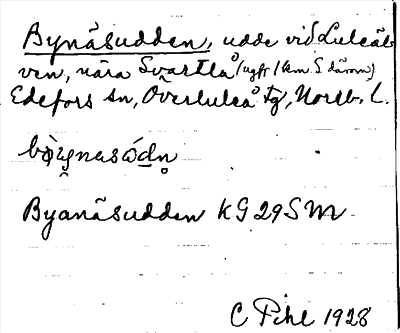 Bynäsudden, udde vid Luleälv-
ven, nära Svartlå (ugft 1 km S därom)
Edefors sn, Överluleå tg, Norrb. L.
Byanäsudden KG29SM
C Pihl 1928